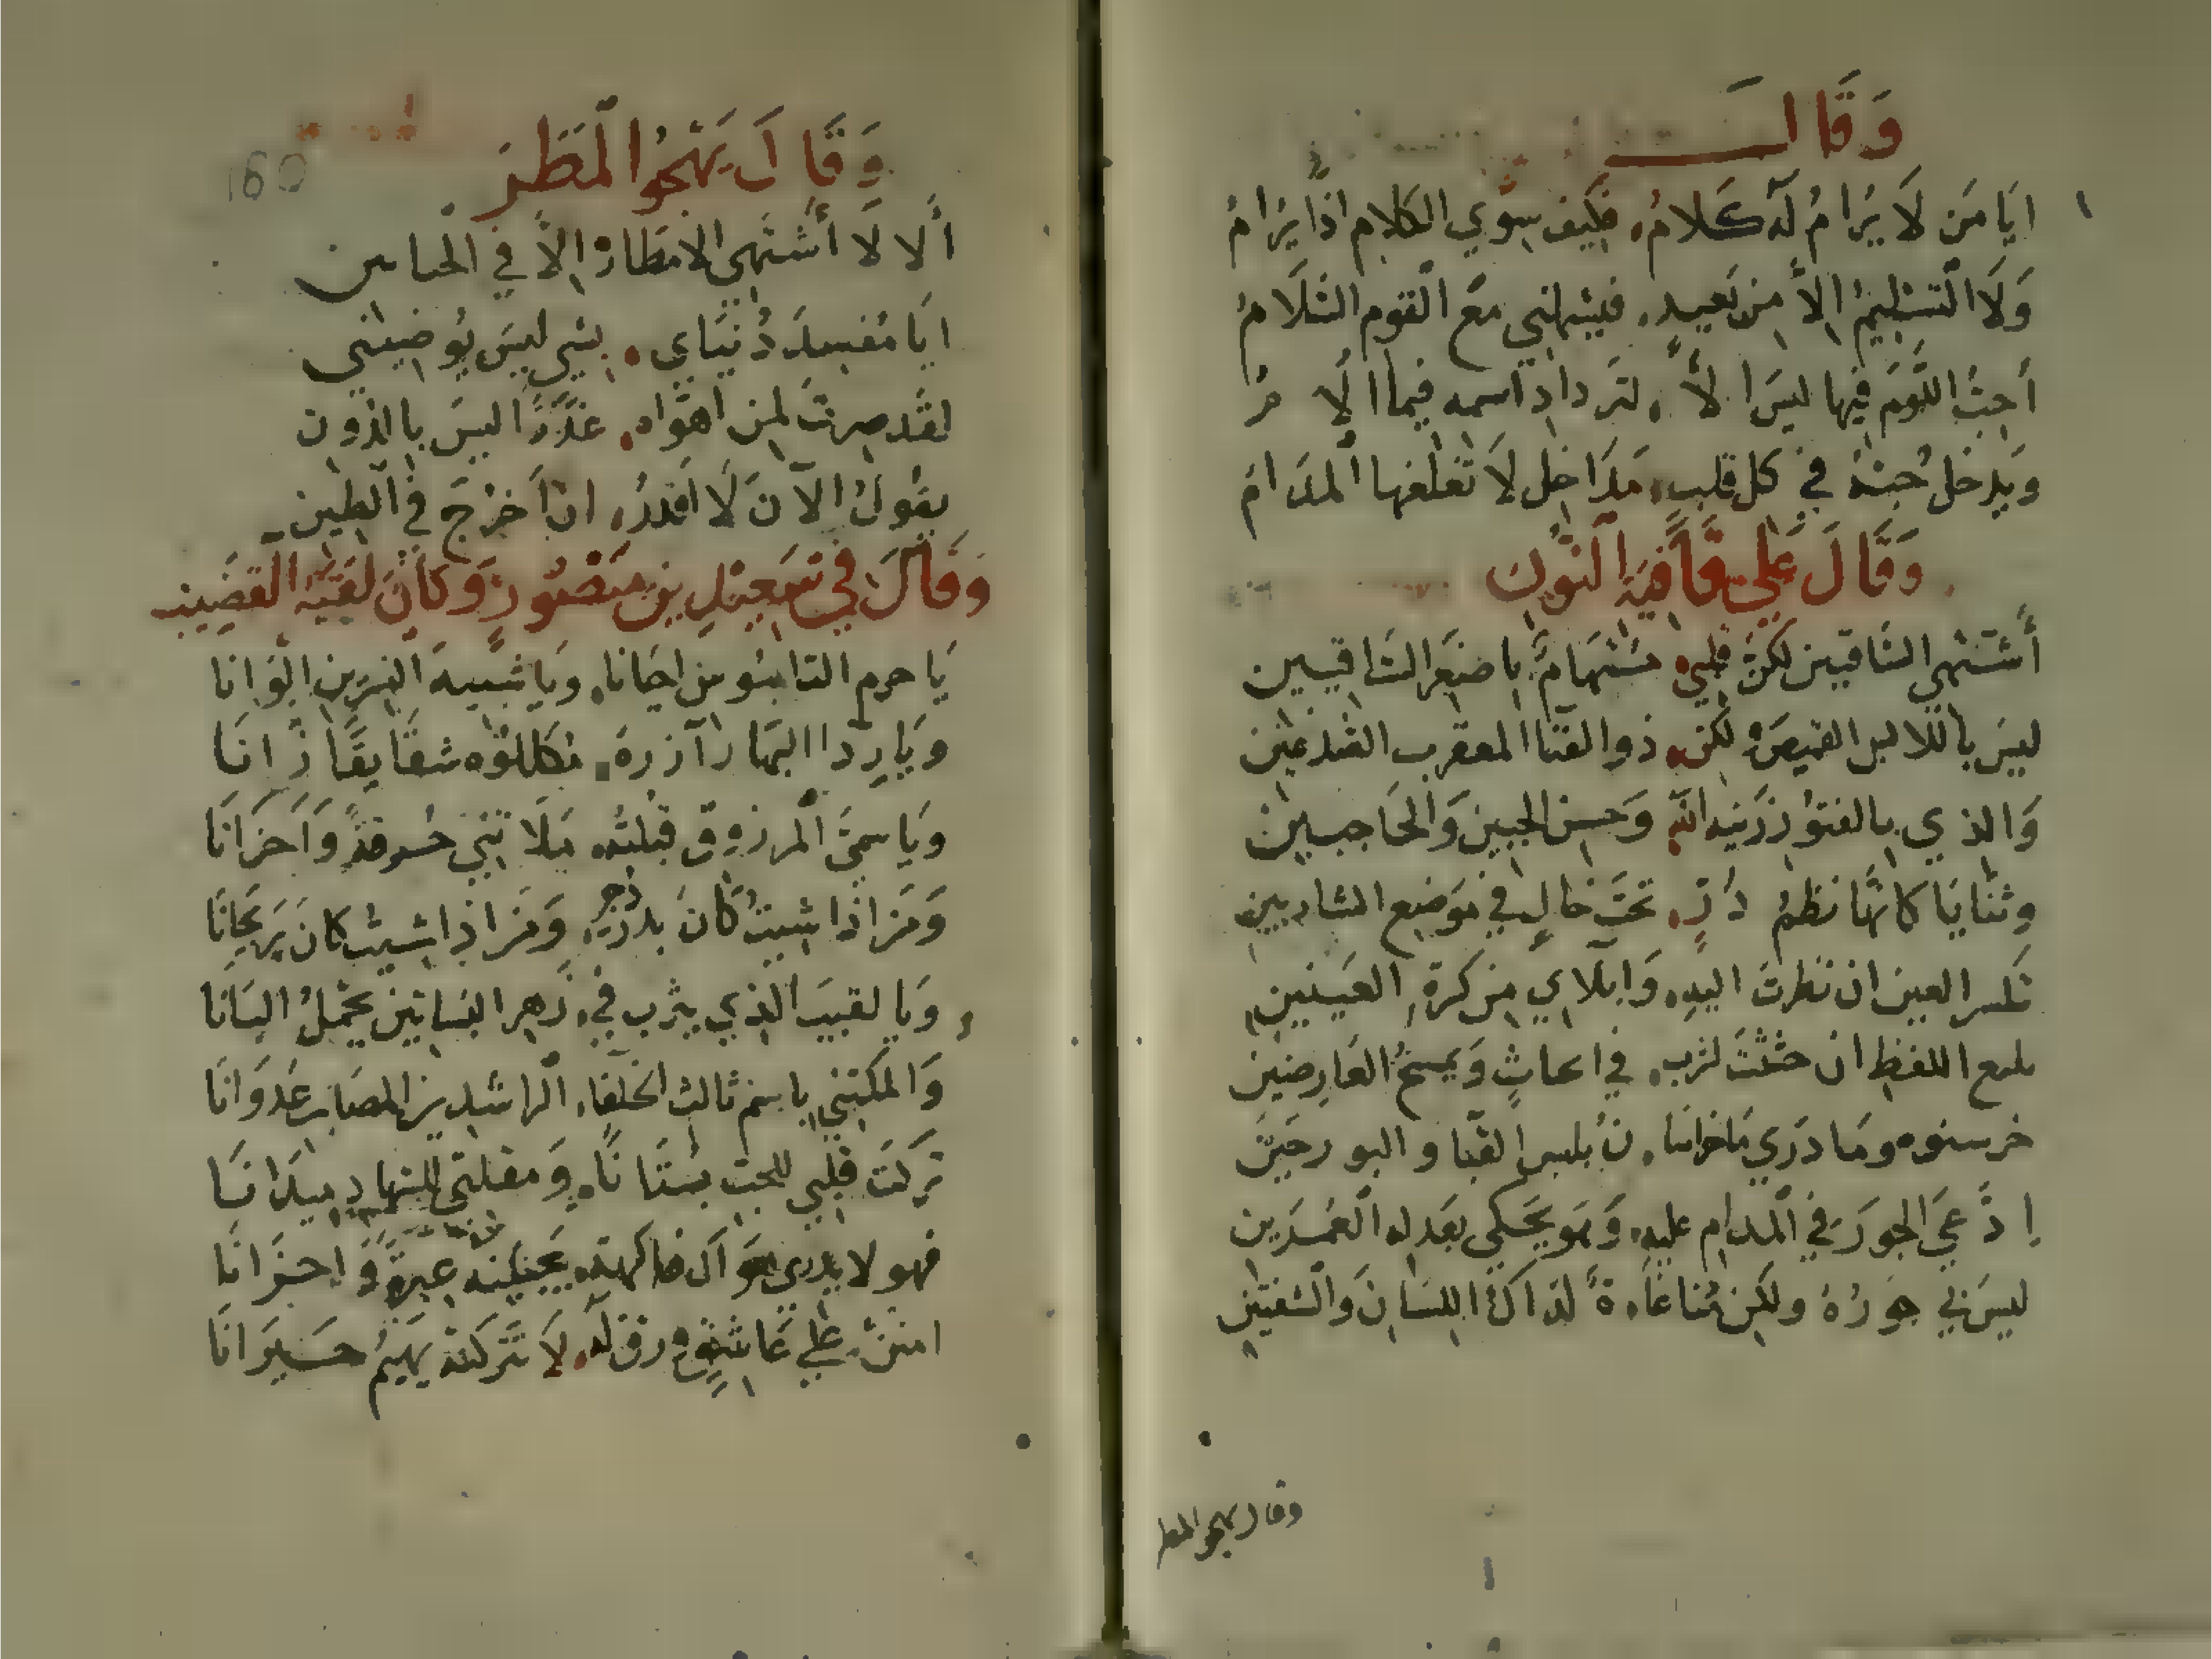 وَقَالَ
ايَا مَن لَا يُرَامُ لَهُ كَلامُ، فكيف سِوَي الكلامِ اذا يُرَامُ
وَلَا التسْليمُ الاَّ مِن بَعيدٍ، فيَثْنيني مَعَ القوم السَّلَامُ
أحِبُّ اللَّوْمَ فيها ليسَ الاَّ، لتَرداد اسمه فيما الَا مُ
وَيدخلُ حُبُّهُ في كل قلبٍ، مَدَاخل لَا تغلغلها المدَامُ
وَقَالَ عَلي قَافِيَةِ النُّونِ
أَشْتَهِي السَّاقيَين لكنَّ قلبي، مُسْتهَامٌ باصْغَر السَّاقيَين
ليسَ باللابس القميصَ لكن، ذوالقَبَا المعقرب الصدغين
وَالذي بالفتوُرزَيَنه اللّٰه، وَحسن الجبين وَالحَاجبين
وثنَايَا كانهَّا نظمُ دُرٍّ، تحتَ خالٍ في مَوضع الشاربين
تكسر العين ان نظرتَ اليهِ، وَابلآي من كرة العَينين
اللفظ ان حثثتَ لشرب، في وَيمسحُ العَارضين
خرسنوه ومَا دَرَي مَا خراسَا، نُ بلبس القبا و البو رحَين
اِدَّعَي الجورَ في المدَام عليهِ، وَهوَ يحَكي بعَدله العُمَرَين
ليسَ بي جَورُهُ ولكن مُناغاَةُ، لذاك اللسَانِ وَالشفتين
وقال يهجو المطر
وَقَالَ يَهْجُوُ المَطَرَ
160
ألا لَا أشتَهي الامطَارَ اِلاَّ في الحبا بين
ايَا مُفسِدَ دُنيَاي، بشي ليسَ يُوضيني
لقَد صرتَ لمن اهوَاه، عذرًا ليسَ بالدون
يقُولُ الآنَ لَا اقدرُ، ان اَخرُجَ في الطين
وَقَالَ في سَعِيْدِ بن مَنصُورٍ وَ كاَنَ لقَبُهُ القضِيْبَ
يَا حرم احيَانا، وَيَا شبيهَ الوَانا
وَيَا ردا البهَارَ آزرهُ، فكللوه شقَايقًا زَانَا
وَيَا سميَّ المرزوق قبلته، مَلَا تنيَ حُسرقةً وَاَحزَانَا
وَمَن اذا شيتُ كَانَ بلدرجهِ، وَمَن اذا شيتُ كَانَ رَيحَانَا
وَيَا لقيبَ الذي يثرب في، زَهرالبسَاتين يحمِلُ البَانَا
وَالمكتني باسْم ثالث الخلفاء، الراشدين المصَابر عُدوَانَا
تركتَ قلبي للحب بسْتَا نَا، وَمقلتي للسهادِ ميدَانَا
فهو لا يدري هَوَ اَك فاكهته، يجَنينه عبرةً وَاحزَانَا
امنن علي عَاشقٍ ورق له، لَا تتركنهُ يَهيمُ حَيرَانَا